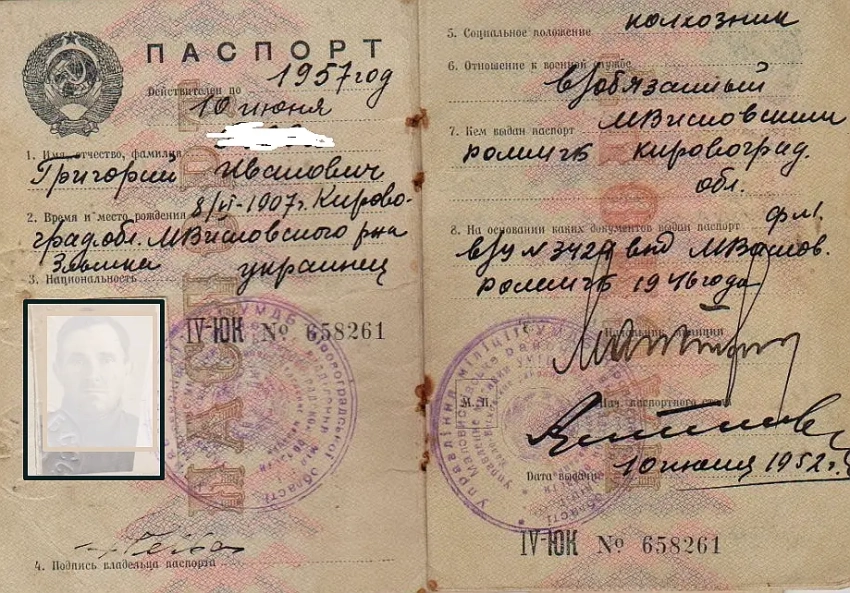 ПАСПОРТ
Действителен по 1957 год
10 июня
1. Имя, отчество, фамилия
Григорий Иванович
2. Время и место рождения 8/VI-1907г. Кирово-
град.обл. МВисловского р-на
3. Национальность украинец
IV-ЮК № 658261
4. Подпись владельца паспорта
5. Социальное положение колхозник
6. Отношение к военной службе
в/обязанный
7. Кем выдан паспорт МВисловским
роммгб Кировоград.
обл.
8. На основании каких документов выдан паспорт ф.№1.
МВислов.
роммгб 1946 года
Начальник милиции
М. П.
Нач. паспортного стола
Дата выдачи 10 июня 1952 г.
IV-ЮК № 658261